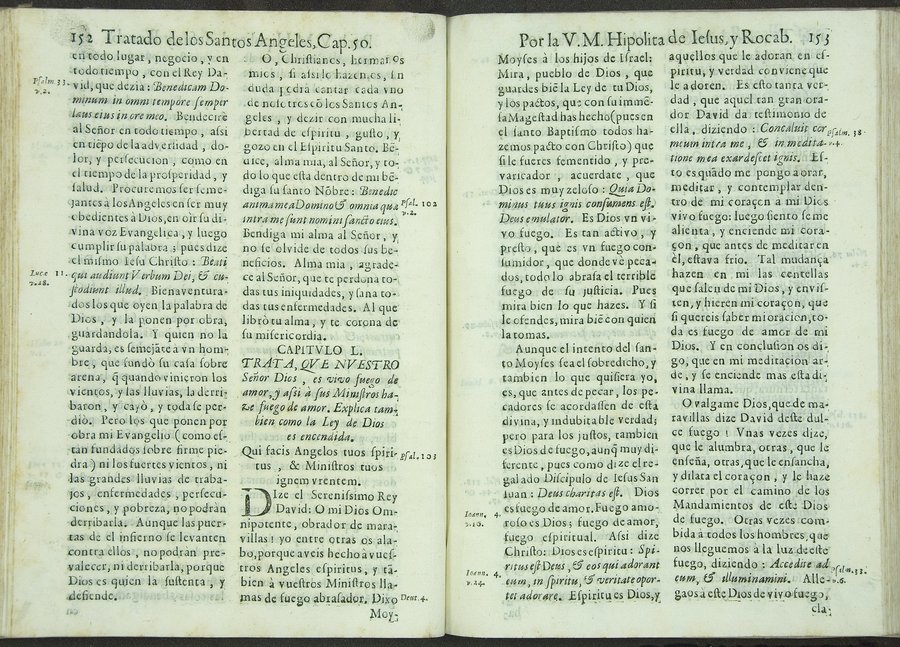 152 Tratado de los Santos Angeles, Cap. 50.
en todo lugar, negocio, y en
todo tiempo, con el Rey Da-
Psalm. 33.
v.2.
vid, que dezia: Benedicam Do-
minum in omni tempore semper
laus eius in ore meo. Bendecire
al Señor en todo tiempo, assi
en tiẽpo de la adversidad, do-
lor, y persecucion, como en
el tiempo de la prosperidad, y
salud. Procuremos ser seme-
jantes à los Angeles en ser muy
obedientes à Dios, en oir su di-
vina voz Evangelica, y luego
cumplir su palabra; pues dize
el mismo Iesu Christo: Beati
Lucæ 11.
v.28.
qui audiunt Verbum Dei, & cu-
stodiunt illud. Bienaventura-
dos los que oyen la palabra de
Dios, y la ponen por obra,
guardandola. Y quien no la
guarda, es semejãte a vn hom-
bre, que fundò su casa sobre
arena, q̃ quando vinieron los
vientos, y las lluvias, la derri-
baron, y cayò, y toda se per-
diò. Pero los que ponen por
obra mi Evangelio (como es-
tan fundados sobre firme pie-
dra) ni los fuertes vientos, ni
las grandes lluvias de traba-
jos, enfermedades, persecu-
ciones, y pobreza, no podràn
derribarla. Aunque las puer-
tas de el infierno se levanten
contra ellos, no podràn pre-
valecer, ni derribarla, porque
Dios es quien la sustenta, y
defiende.
O, Christianos, hermanos
mios, si assi lo hazemos, sin
duda podrà cantar cada vno
de nosotros cõ los Santos An-
geles, y dezir con mucha li-
bertad de espiritu, gusto, y
gozo en el Espiritu Santo. Bẽ-
dice, alma mia, al Señor, y to-
do lo que està dentro de mi bẽ-
diga su santo Nõbre: Benedic
anima mea Domino & omnia quæ
Psal. 102
v.2.
intra me sunt nomini sancto eius.
Bendiga mi alma al Señor, y
no se olvide de todos sus be-
neficios. Alma mia, agrade-
ce al Señor, que te perdona to-
das tus iniquidades, y sana to-
das tus enfermedades. Al que
librò tu alma, y te corona de
su misericordia.
CAPITVLO L.
TRATA, QVE NVESTRO
Señor Dios, es vivo fuego de
amor, y assi à sus Ministros ha-
ze fuego de amor. Explica tam-
bien como la Ley de Dios
es encendida.
Qui facis Angelos tuos spiri-
Psal. 103
tus, & Ministros tuos
ignem vrentem.
Dize el Serenissimo Rey
David: O mi Dios Om-
nipotente, obrador de mara-
villas! yo entre otras os ala-
bo, porque aveis hecho à vues-
tros Angeles espiritus, y tã-
bien à vuestros Ministros lla-
mas de fuego abrasador. Dixo
Deut. 4.
Moy-
Por la V. M. Hipolita de Iesus, y Rocab. 153
Moyses à los hijos de Israel:
Mira, pueblo de Dios, que
guardes biẽ la Ley de tu Dios,
y los pactos, que con su immẽ-
sa Magestad has hecho (pues en
el santo Baptismo todos ha-
zemos pacto con Christo) que
si le fueres fementido, y pre-
varicador, acuerdate, que
Dios es muy zeloso: Quia Do-
minus tuus ignis consumens est.
Deus emulator. Es Dios vn vi-
vo fuego. Es tan activo, y
presto, que es vn fuego con-
sumidor, que donde vè peca-
dos, todo lo abrasa el terrible
fuego de su justicia. Pues
mira bien lo que hazes. Y si
le ofendes, mira biẽ con quien
la tomas.
Aunque el intento del san-
to Moyses sea el sobredicho, y
tambien lo que quisiera yo,
es, que antes de pecar, los pe-
cadores se acordassen de esta
divina, y indubitable verdad;
pero para los justos, tambien
es Dios de fuego, aunq̃ muy di-
ferente, pues como dize el re-
galado Discipulo de Iesus San
Iuan: Deus charitas est. Dios
Ioann. 4.
v.10.
es fuego de amor. Fuego amo-
roso es Dios; fuego de amor,
fuego espiritual. Assi dize
Christo: Dios es espiritu: Spi-
ritus est Deus, & eos qui adorant
Ioann. 4.
v.24.
eum, in spiritu, & veritate opor-
tet adorare. Espiritu es Dios, y
aquellos que le adoran en es-
piritu, y verdad conviene que
le adoren. Es esto tanta ver-
dad, que aquel tan gran ora-
dor David da testimonio de
ella, diziendo: Concaluit cor
Psalm. 38.
v.4.
meum intra me, & in medita-
tione mea exardescet ignis. Es-
to es quãdo me pongo a orar,
meditar, y contemplar den-
tro de mi coraçon a mi Dios
vivo fuego: luego siento se me
alienta, y enciende mi cora-
çon, que antes de meditar en
èl, estava frio. Tal mudança
hazen en mi las centellas
que salen de mi Dios, y envis-
ten, y hieren mi coraçon, que
si quereis saber mi oracion, to-
da es fuego de amor de mi
Dios. Y en conclusion os di-
go, que en mi meditacion ar-
de, y se enciende mas esta di-
vina llama.
O valgame Dios, que de ma-
ravillas dize David deste dul-
ce fuego! Vnas vezes dize,
que alumbra, otras, que le
enseña, otras, que le ensancha,
y dilata el coraçon, y le haze
correr por el camino de los
Mandamientos de este Dios
de fuego. Otras vezes com-
bida à todos los hombres, que
nos lleguemos à la luz de este
fuego, diziendo: Accedite ad
Psalm. 33.
v.6.
eum, & illuminamini. Alle-
gaos à este Dios de vivo fuego,
cla-